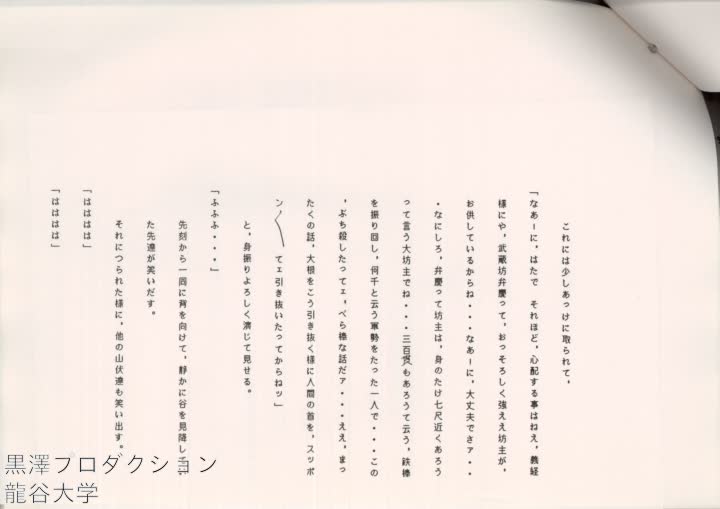 これには少しあっけに取られて，
「なあーに，はたで　それほど，心配する事はねえ，義経
様にや，武蔵坊弁慶って，おっそろしく強ええ坊主が，
お供しているからね・・・なあーに，大丈夫でさァ・・
・なにしろ，弁慶って坊主は，身のたけ七尺近くあろう
って言う大坊主でね・・・三百貫もあろうて云う，鉄棒
を振り回し，何千と云う軍勢をたった一人で・・・この
，ぶち殺したってェ，べら棒な話だァ・・・ええ，まっ
たくの話，大根をこう引き抜く様に人間の首を，スッポ
ン／＼てェ引き抜いたってからねッ」
と，身振りよろしく演じて見せる。
「ふふふ・・・」
先刻から一同に背を向けて，静かに谷を見降して
た先達が笑いだす。
それにつられた様に，他の山伏達も笑い出す。
「はははは」
「はははは」
黒澤プロダクション
龍谷大学